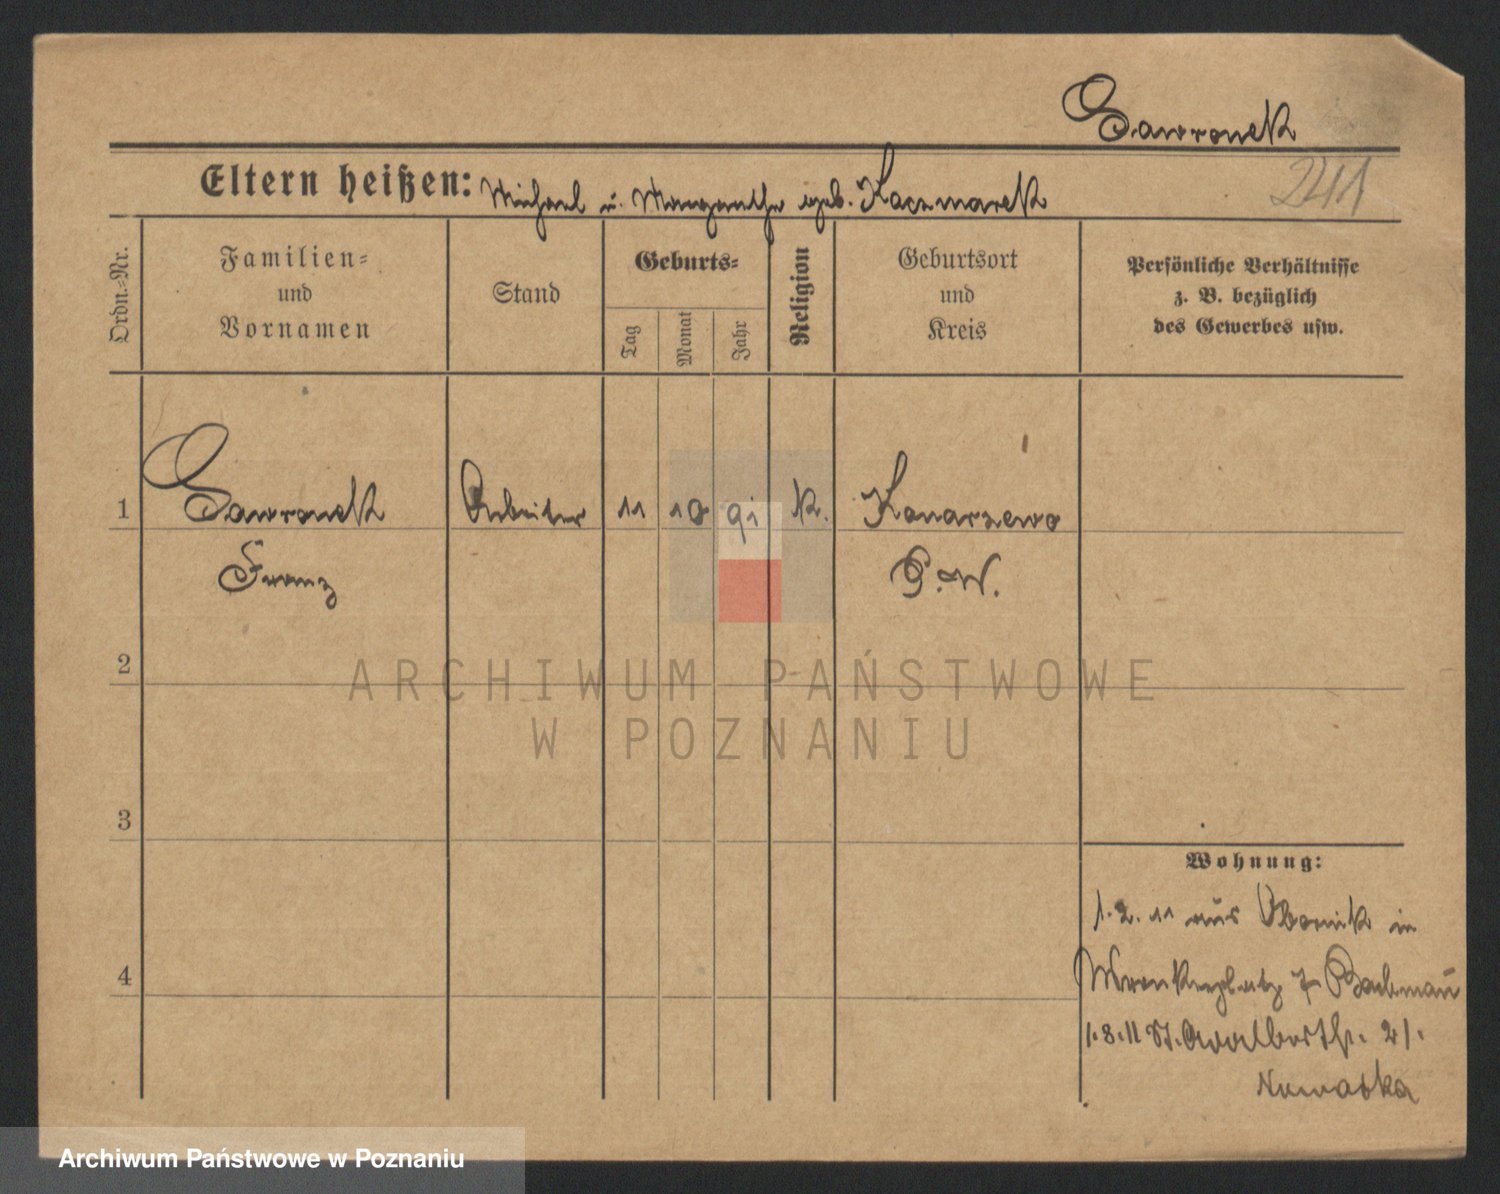 Gawronek
241
Eltern heißen: Michael u. Margarethe geb. Kaczmarek
Ordn.=Nr.
Familien=
und
Vornamen
Stand
Geburts=
Tag
Monat
Jahr
Religion
Geburtsort
und
Kreis
Persönliche Verhältnisse
z. B. bezüglich
des Gewerbes usw.
1 Gawronek Arbeiter 11 10 91 K. Konarzewo
Franz P.-W.
2
3
4
Wohnung:
1.2.11 aus Obornik in
Wronkerplatz 7
1.8.11 St. Adalbertstr. 21.
Nowacka
ARCHIWUM PAŃSTWOWE
W POZNANIU
Archiwum Państwowe w Poznaniu